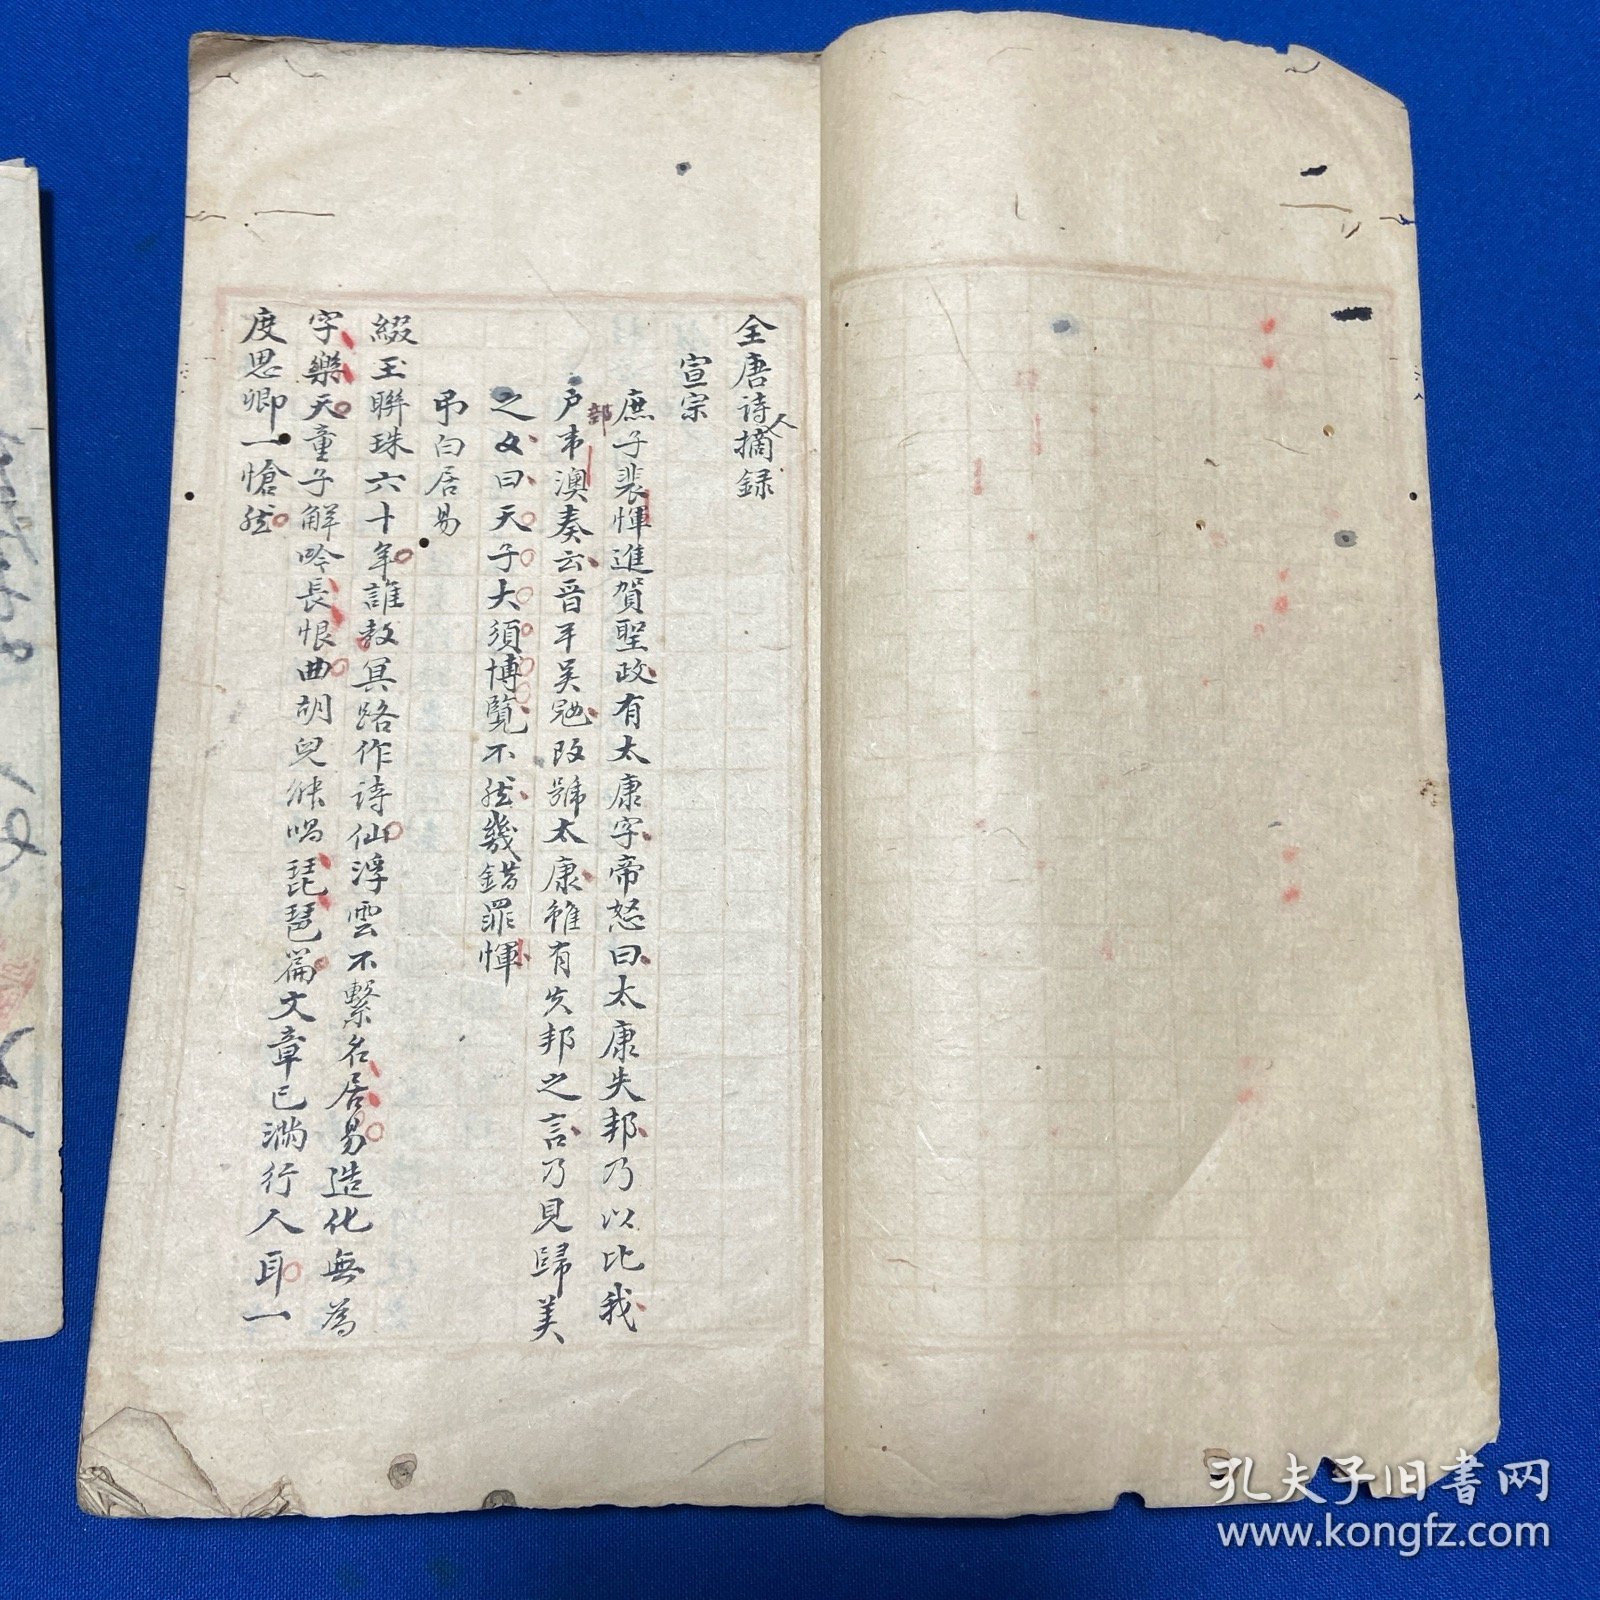 全唐詩人摘録
宣宗
庶子裴惲進賀聖政有太康字帝怒曰太康失邦乃以比我
户部韦澳奏云晋平吴冦改號太康雖有失邦之言乃見歸美
之文曰天子大須博覧不然幾錯罪惲
吊白居易
綴玉聯珠六十年誰教冥路作詩仙浮雲不繫名居易造化無為
字樂天童子解吟長恨曲胡兒能唱琵琶篇文章已滿行人耳一
度思卿一愴然
孔夫子旧书网
www.kongfz.com